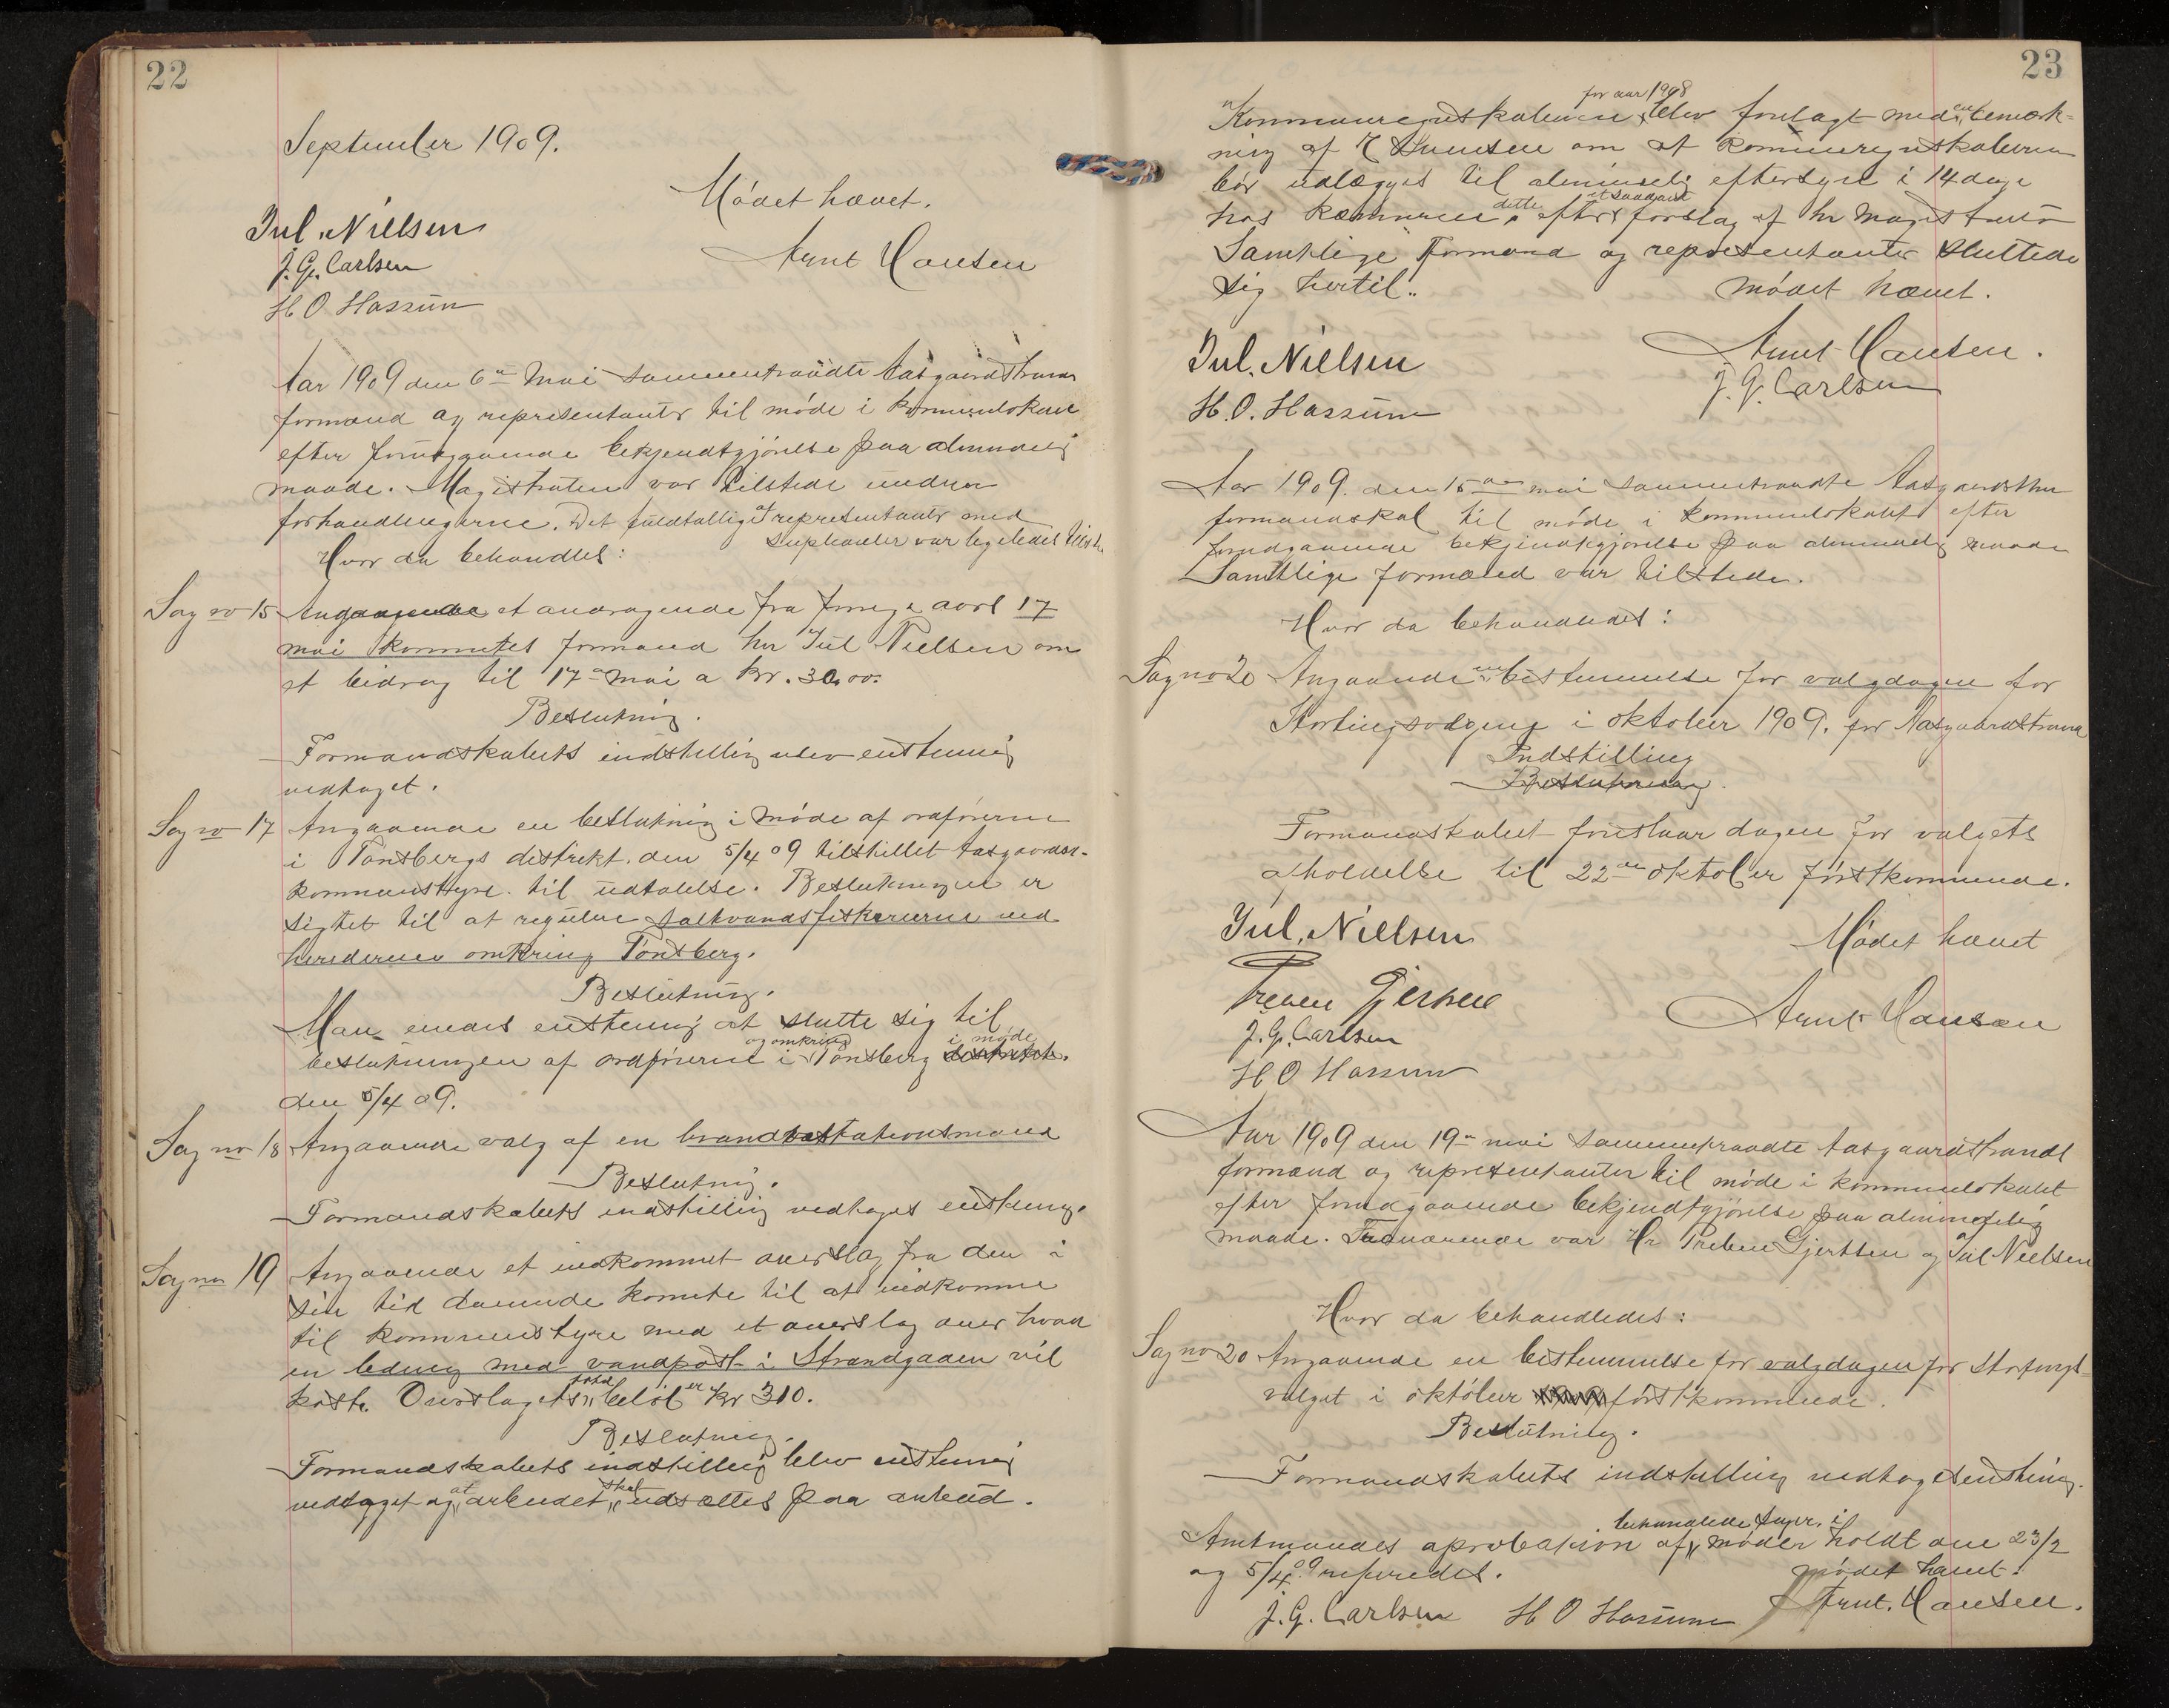 22
September 1909.
Mödet hævet.
Arnt Hansen
Jul. Nielsen
J. G. Carlsen
H O Hassum
Aar 1909 den 6te Mai sammentraadte Aasgaardstrands
formænd og representanter til möde i kommunlokalet
efter forudgaaende bekjendtgjörelse paa almindelig
maade. Magistraten var tilstede under
forhandlingerne. Det fuldtallige af representanter med
supleanter var ligeledes tilstede
Hvor da behandles:
Sag no 15 Angaaende et andragende fra forrige aars 17
mai komites formand hr Jul Nielsen om
et bidrag til 17de mai a kr. 30.00.
Beslutning.
Formandskabets indstilling blev enstemmig
vedtaget.
Sag no 17 Angaaende en beslutning i möde af ordförerne
i Tönsbergs distrikt. den 5/4 09 tilstillet Aasgaards-
kommunstyre til udtalelse. Beslutningen er
sigtet til at regulere saltvandsfiskerierne ved
herederne omkring Tönsberg.
Beslutning.
Man enedes enstemmig at slutte sig til
beslutningen af ordförerne i og omkring Tönsberg distrikt. i möde
den 5/4 09.
Sag no 18 Angaaende valg af en brandstationsmand
Beslutning.
Formandskabets indstilling vedtages enstemmig.
Sag no 19 Angaaende et indkommet overslag fra den i
sin tid dannende komite til at indkomme
til kommunstyre med et overslag over hvad
en ledning med vandpost i Strandgaden vil
koste. Overslagets total belöb er kr 310.
Beslutning.
Formandskabets indstilling blev enstemmig
vedtaget og at arbeidet skal udsættes paa anbud.
23
Kommuneregnskaberne for aar 1908 blev forelagt med en bemærk-
ning af om at kommuneregnskaberne
bör udlægges til almindelig eftersyn i 14 dage
hos kæmneren, dette efter et saadant forslag af hr Magistraten
Samtlige formænd og representanter sluttede
sig hertil..
mödet hævet.
Arnt Hansen.
Jul. Nielsen
J. G. Carlsen
H. O. Hassum
Aar 1909. den 15de mai sammentraadte Aasgaardstrands
formandskab til möde i kommunlokalet efter
forudgaaende bekjendtgjörelse paa almindelig maade
Samtlige formænd var tilstede.
Hvor da behandledes:
Sag no 20 Angaaende en bestemmelse for valgdagen for
Stortingsvalgene i oktober 1909. for Aasgaardstrand
Indstilling
Beslutning.
Formandskabet foreslaar dagen for valgets
afholdelse til 22de oktober förstkommende.
Jul. Nielsen
Mödet hævet
Preben Gjertsen
Arnt Hansen
J. G. Carlsen
H O Hassum
Aar 1909 den 19de mai sammentraadte Aasgaardstrands
formænd og representanter til möde i kommunlokalet
efter forudgaaende bekjendtgjörelse paa almindelig
maade. Fraværende var Hr Preben Gjertsen og Jul Nielsen
Hvor da behandledes:
Sag no 20 Angaaende en bestemmelse for valgdagen for Stortings-
valget i oktober förstkommende.
Beslutning.
Formandskabets indstilling vedtoges enstemmig.
Amtmandes aprobation af behandlede sager i möder holdt den 23/2
og 5/4 09 refereredes.
mödet hævet.
J. G. Carlsen H O Hassum Arnt. Hansen.